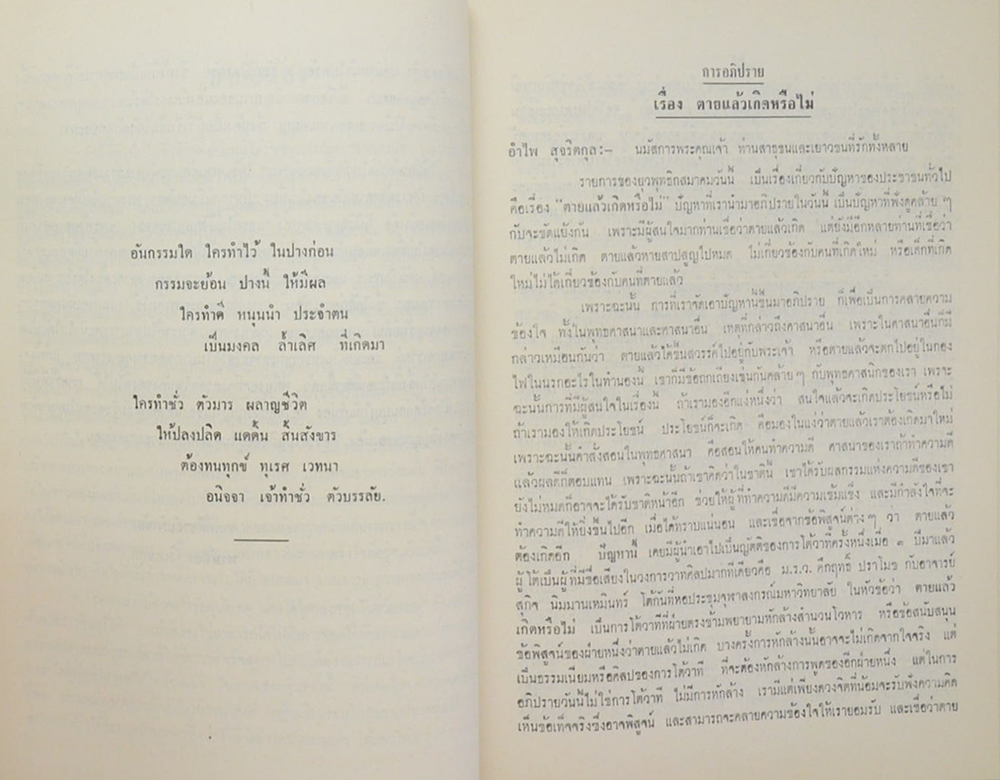 อันกรรมใด ใครทำไว้ ในปางก่อน
กรรมจะย้อน ปางนี้ ให้มีผล
ใครทำดี หนุนนำ ประจำตน
เป็นมงคล ล้ำเลิศ ที่เกิดมา
ใครทำชั่ว ตัวมาร ผลาญชีวิต
ให้ปลงปลิด แดดิ้น สิ้นสังขาร
ต้องทนทุกข์ ทุเรศ เวทนา
อนิจจา เจ้าทำชั่ว ตัวบรรลัย.
การอภิปราย
เรื่อง ตายแล้วเกิดหรือไม่
อำไพ สุจริตกุล:- นมัสการพระคุณเจ้า ท่านสาธุชนและเยาวชนที่รักทั้งหลาย
รายการของยุวพุทธิกสมาคมวันนี้ เป็นเรื่องเกี่ยวกับปัญหาของประชาชนทั่วไป
คือเรื่อง "ตายแล้วเกิดหรือไม่" ปัญหาที่เรานำมาอภิปรายในวันนี้ เป็นปัญหาที่ฟังดูคล้าย ๆ
กับจะขัดแย้งกัน เพราะมีผู้สนใจมากท่านเชื่อว่าตายแล้วเกิด แต่ยังมีอีกหลายท่านที่เชื่อว่า
ตายแล้วไม่เกิด ตายแล้วหายสาปสูญไปหมด ไม่เกี่ยวข้องกับคนที่เกิดใหม่ หรือเด็กที่เกิด
ใหม่ไม่ได้เกี่ยวข้องกับคนที่ตายแล้ว
เพราะฉะนั้น การที่เราจัดเอาปัญหานี้ขึ้นมาอภิปราย ก็เพื่อเป็นการคลายความ
ข้องใจ ทั้งในพุทธศาสนาและศาสนาอื่น เหตุที่กล่าวถึงศาสนาอื่น เพราะในศาสนาอื่นก็มี
กล่าวเหมือนกันว่า ตายแล้วได้ขึ้นสวรรค์ไปอยู่กับพระเจ้า หรือตายแล้วจะตกไปอยู่ในกอง
ไฟในนรกอะไรในทำนองนี้ เขาก็มีข้อถกเถียงเช่นกันคล้าย ๆ กับพุทธศาสนิกของเรา เพราะ
ฉะนั้นการที่มีผู้สนใจในเรื่องนี้ ถ้าเรามองอีกแง่หนึ่งว่า สนใจแล้วจะเกิดประโยชน์หรือไม่
ถ้าเรามองให้เกิดประโยชน์ ประโยชน์ก็จะเกิด คือมองในแง่ว่าตายแล้วเราต้องเกิดมาใหม่
เพราะฉะนั้นคำสั่งสอนในพุทธศาสนา คือสอนให้คนทำความดี ศาสนาของเราถ้าทำความดี
แล้วผลดีก็ตอบแทน เพราะฉะนั้นถ้าเขาคิดว่าในชาตินี้ เขาได้รับผลกรรมแห่งความดีของเขา
ยังไม่หมดก็อาจจะได้รับชาติหน้าอีก ช่วยให้ผู้ที่ทำความดีมีความเข้มแข็ง และมีกำลังใจที่จะ
ทำความดีให้ยิ่งขึ้นไปอีก เมื่อได้ทราบแน่นอน และเชื่อจากข้อพิสูจน์ต่าง ๆ ว่า ตายแล้ว
ต้องเกิดอีก ปัญหานี้ เคยมีผู้นำเอาไปเป็นญัตติของการโต้วาทีครั้งหนึ่งเมื่อ ๓ ปีมาแล้ว
ผู้โต้เป็นผู้ที่มีชื่อเสียงในวงการวาทศิลปมากทีเดียวคือ ม.ร.ว. คึกฤทธิ์ ปราโมช กับอาจารย์
สุกิจ นิมมานเหมินทร์ โต้กันที่หอประชุมจุฬาลงกรณ์มหาวิทยาลัย ในหัวข้อว่า ตายแล้ว
เกิดหรือไม่ เป็นการโต้วาทีที่ฝ่ายตรงข้ามพยายามหักล้างสำนวนโวหาร หรือข้อสนับสนุน
ข้อพิสูจน์ของฝ่ายหนึ่งว่าตายแล้วไม่เกิด บางครั้งการหักล้างนั้นอาจจะไม่เกิดจากใจจริง แต่
เป็นธรรมเนียมหรือศิลปของการโต้วาที ที่จะต้องหักล้างการพูดของอีกฝ่ายหนึ่ง แต่ในการ
อภิปรายวันนี้ไม่ใช่การโต้วาที ไม่มีการหักล้าง เรามีแต่เพียงดวงจิตที่น้อมจะรับฟังความคิด
เห็นข้อเท็จจริงซึ่งอาจพิสูจน์ และสามารถจะคลายความข้องใจให้เรายอมรับ และเชื่อว่าตาย